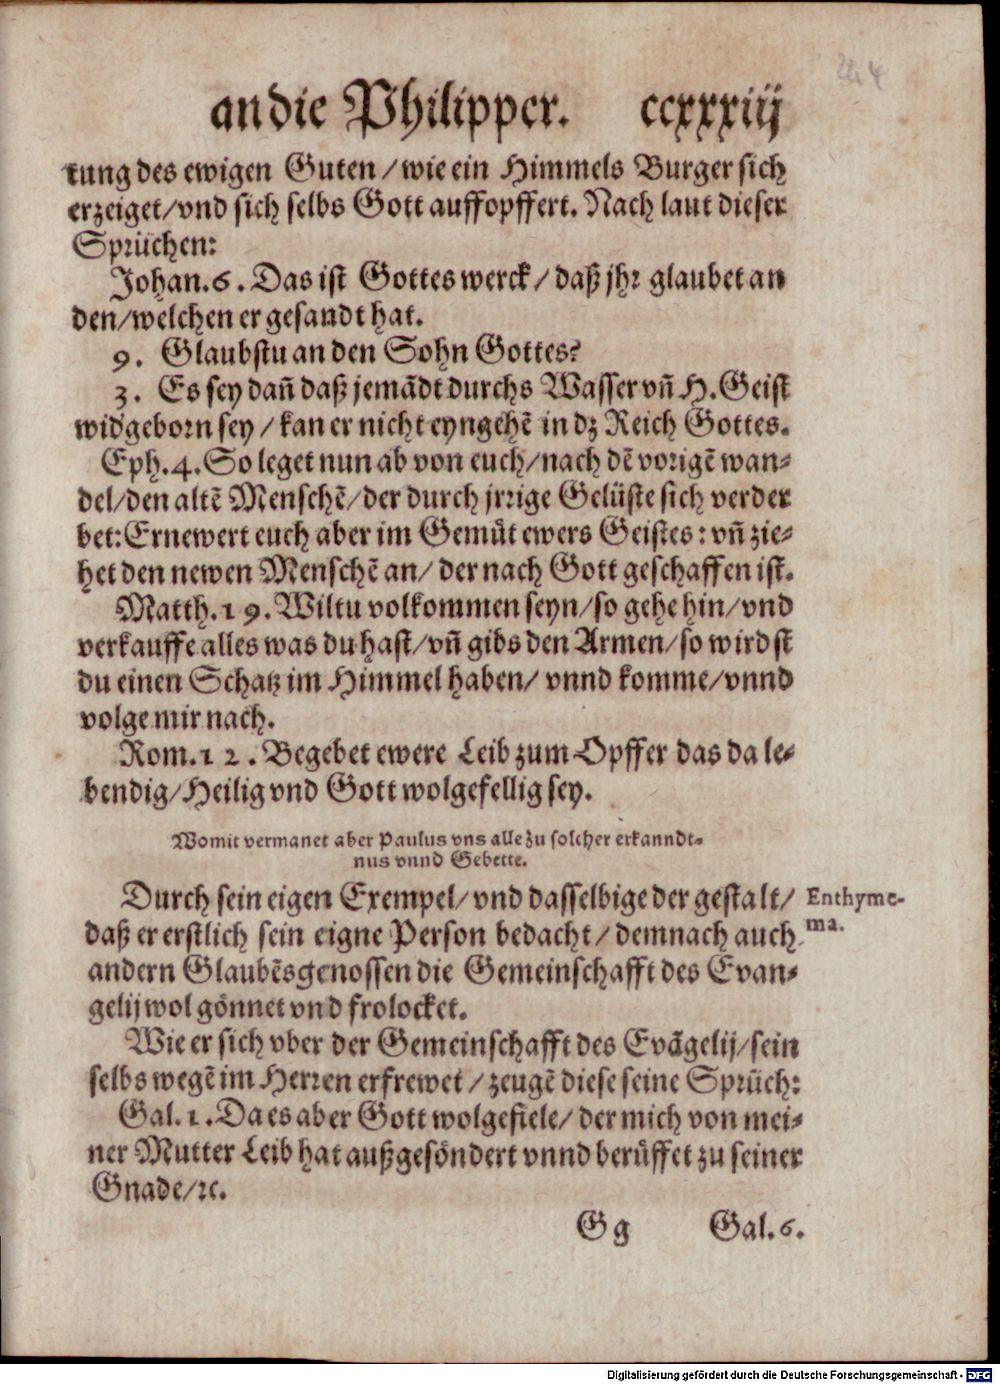 224
an die Philipper. ccxxxiij
tung des ewigen Guten / wie ein Himmels Burger sich
erzeiget/vnd sich selbs Gott auffopffert. Nach laut dieser
Sprüchen:
Johan.6. Das ist Gottes werck / daß jhr glaubet an
den/welchen er gesandt hat.
9. Glaubstu an den Sohn Gottes?
3. Es sey dañ daß jemãdt durchs Wasser vñ H. Geist
wid'geborn sey / kan er nicht eyngehẽ in dz Reich Gottes.
Eph.4. So leget nun ab von euch/nach dẽ vorigẽ wan-
del/den altẽ Menschẽ/der durch jrrige Gelüste sich verder
bet: Ernewert euch aber im Gemüt ewers Geistes: vñ zie-
het den newen Menschẽ an/ der nach Gott geschaffen ist.
Matth.19. Wiltu volkommen seyn/so gehe hin/vnd
verkauffe alles was du hast/vñ gibs den Armen/so wirdst
du einen Schatz im Himmel haben/ vnnd komme/vnnd
volge mir nach.
Rom.12. Begebet ewere Leib zum Opffer das da le-
bendig/Heilig vnd Gott wolgefellig sey.
Womit vermanet aber Paulus vns alle zu solcher erkanndt-
nus vnnd Gebette.
Durch sein eigen Exempel/ vnd dasselbige der gestalt/ Enthyme-
daß er erstlich sein eigne Person bedacht / demnach auch ma.
andern Glaubẽsgenossen die Gemeinschafft des Evan-
gelij wol gönnet vnd frolocket.
Wie er sich vber der Gemeinschafft des Evãgelij/sein
selbs wegẽ im Herren erfrewet / zeugẽ diese seine Sprüch:
Gal.1. Da es aber Gott wolgefiele/ der mich von mei-
ner Mutter Leib hat außgesöndert vnnd berüffet zu seiner
Gnade/ꝛc.
Gg Gal.6.
Digitalisierung gefördert durch die Deutsche Forschungsgemeinschaft - DFG